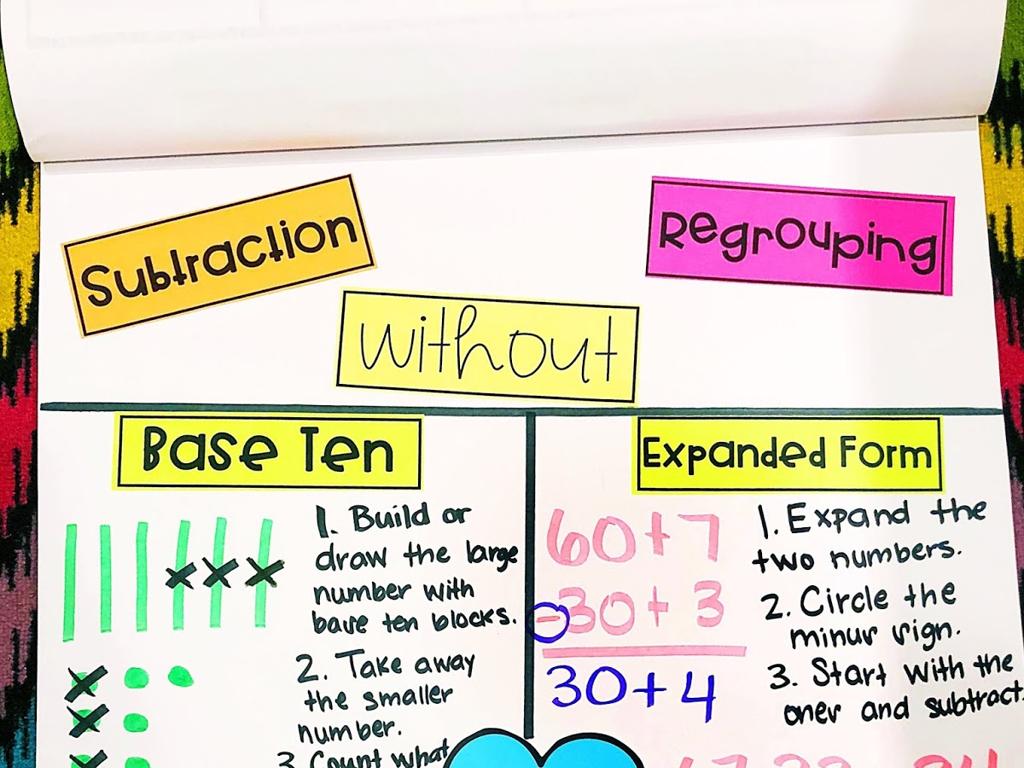 Subtraction
Without
Regrouping
Base Ten
1. Build or
draw the large
number with
base ten blocks.
2. Take away
the smaller
number.
3. Count what
Expanded Form
60+7
-30+3
30+4
1. Expand the
two numbers.
2. Circle the
minus sign.
3. Start with the
ones and subtract.